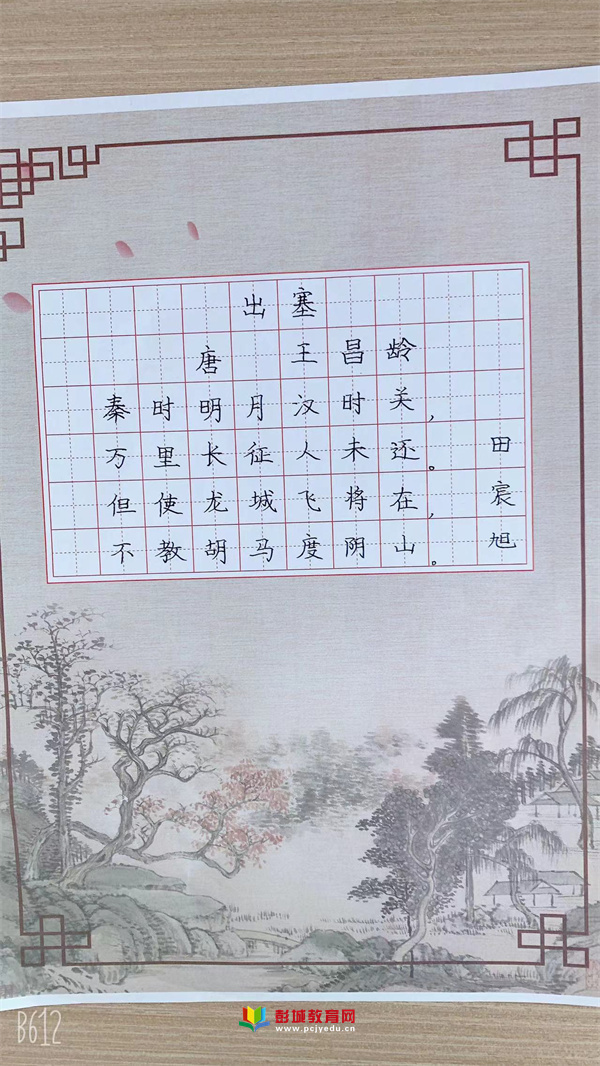 出塞
唐 王昌龄
秦时明月汉时关，
万里长征人未还。
但使龙城飞将在，
不教胡马度阴山。
田宸旭
B612
彭城教育网
www.pcjyedu.cn